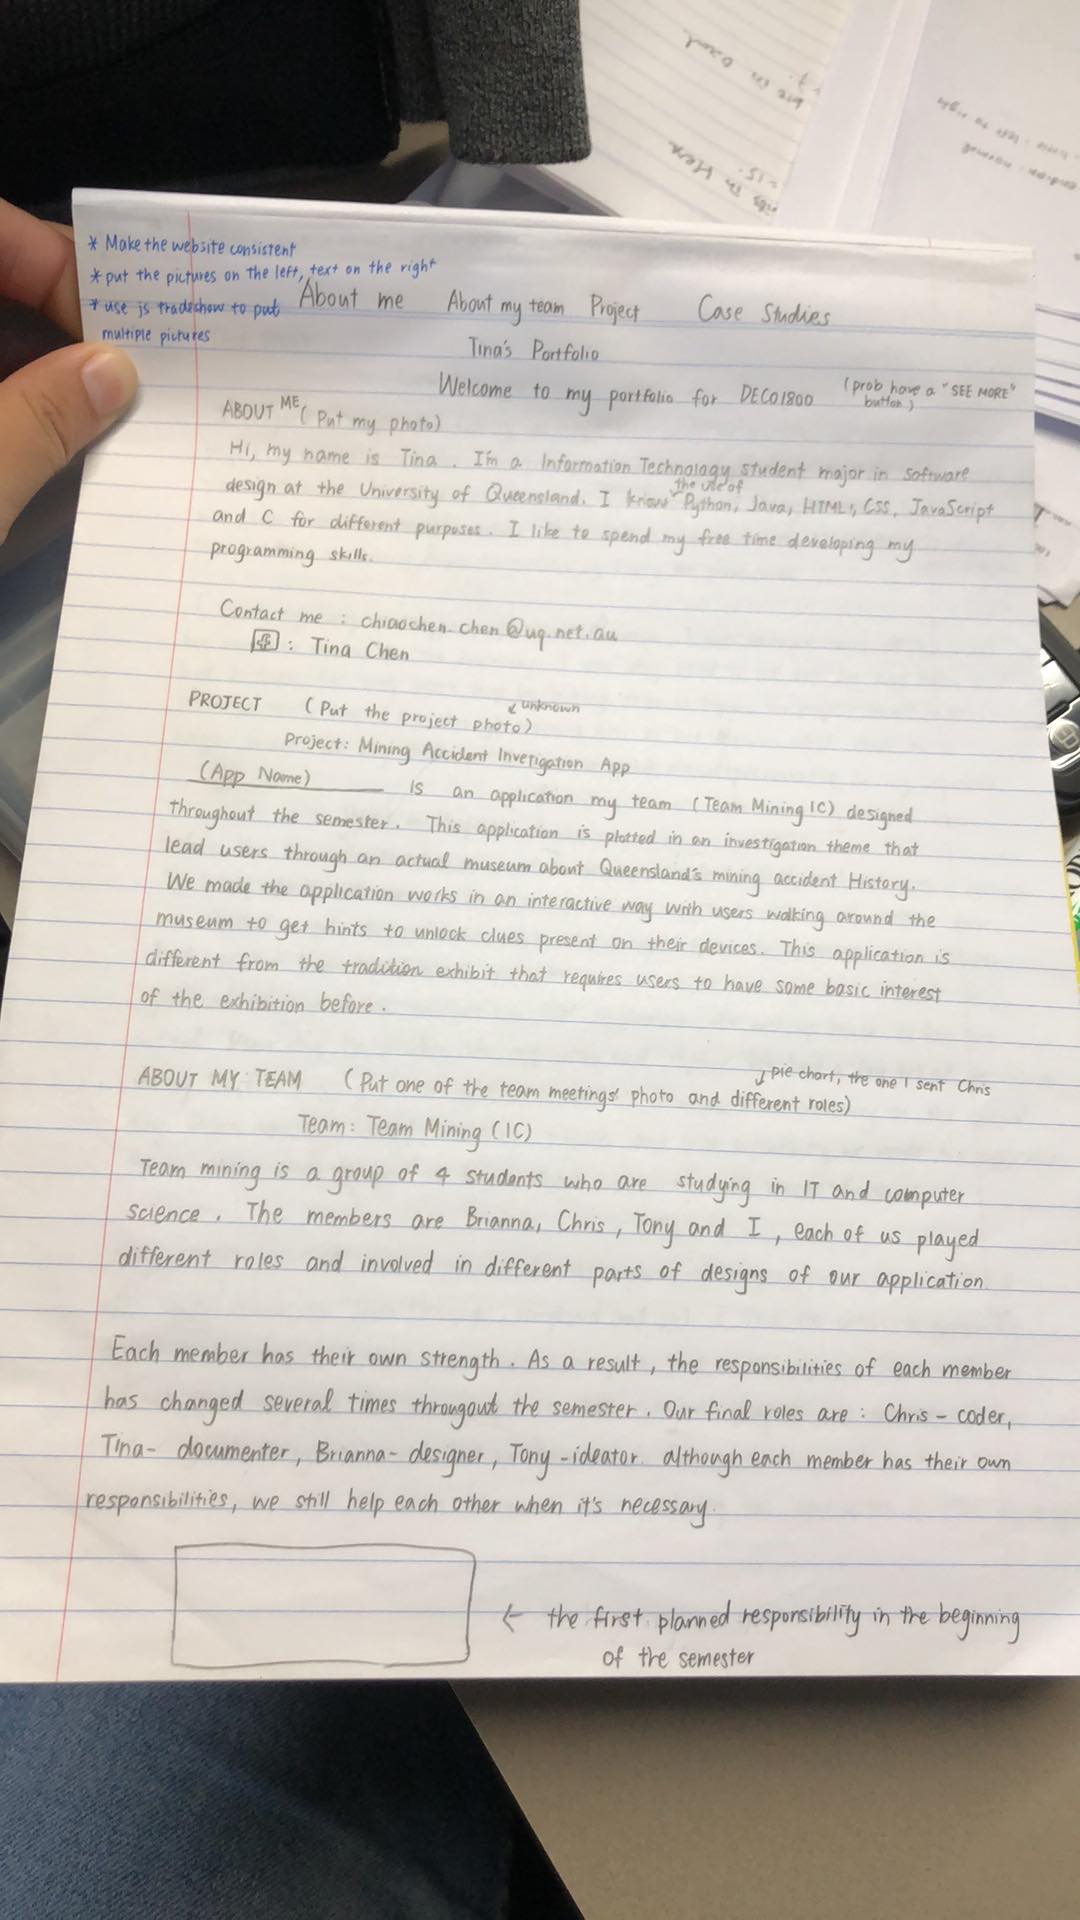 * Make the website consistent
* put the pictures on the left, text on the right
* use js tradeshow to put
multiple pictures
About me About my team Project Case Studies
Tina's Portfolio
Welcome to my portfolio for DECO1800 (prob have a "SEE MORE"
button)
ABOUT ME (Put my photo)
Hi, my name is Tina. I'm a Information Technology student major in software
design at the University of Queensland. I know the use of Python, Java, HTML, CSS, JavaScript
and C for different purposes. I like to spend my free time developing my
programming skills.
Contact me : chiaochen.chen@uq.net.au
: Tina Chen
PROJECT (Put the project photo) ↙ unknown
Project: Mining Accident Invetigation App
(App Name) is an application my team (Team Mining IC) designed
throughout the semester. This application is plotted in an investigation theme that
lead users through an actual museum about Queensland's mining accident History.
We made the application works in an interactive way with users walking around the
museum to get hints to unlock clues present on their devices. This application is
different from the tradition exhibit that requires users to have some basic interest
of the exhibition before.
ABOUT MY TEAM (Put one of the team meetings' photo and different roles) ↓ pie chart, the one I sent Chris
Team: Team Mining (IC)
Team mining is a group of 4 students who are studying in IT and computer
science. The members are Brianna, Chris, Tony and I, each of us played
different roles and involved in different parts of designs of our application.
Each member has their own strength. As a result, the responsibilities of each member
has changed several times througout the semester. Our final roles are : Chris - coder,
Tina - documenter, Brianna - designer, Tony - ideator. although each member has their own
responsibilities, we still help each other when it's necessary.
← the first planned responsibility in the beginning
of the semester
bits in Hex
= 15.